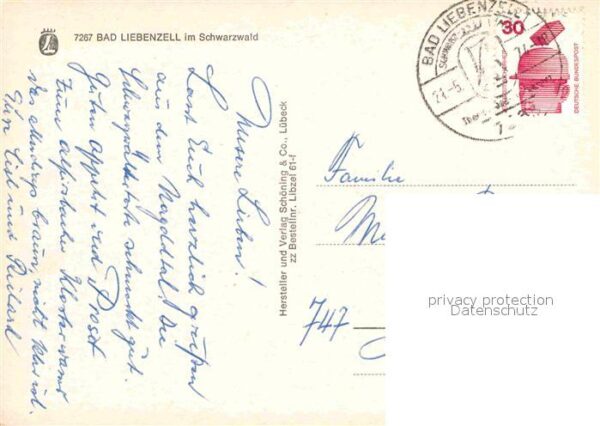 7267 BAD LIEBENZELL im Schwarzwald
Unsere Lieben!
Lasst Euch herzlich grüßen
aus dem Nagoldtal. Die
Schwarzwaldtorte schmeckt gut.
Guten Appetit und Prost
zum Alpirsbacher Klosterwasser
das allerdings braun, nicht klar ist.
Eure Liesl und Richard
Hersteller und Verlag Schöning & Co., Lübeck
zz Bestellnr. Libzel 61-f
BAD LIEBENZELL 1
21.-5.
30
DEUTSCHE BUNDESPOST
Familie
747
privacy protection
Datenschutz